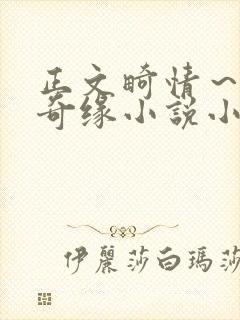 正文畸情~
奇缘小説小
伊麗莎白瑪莎